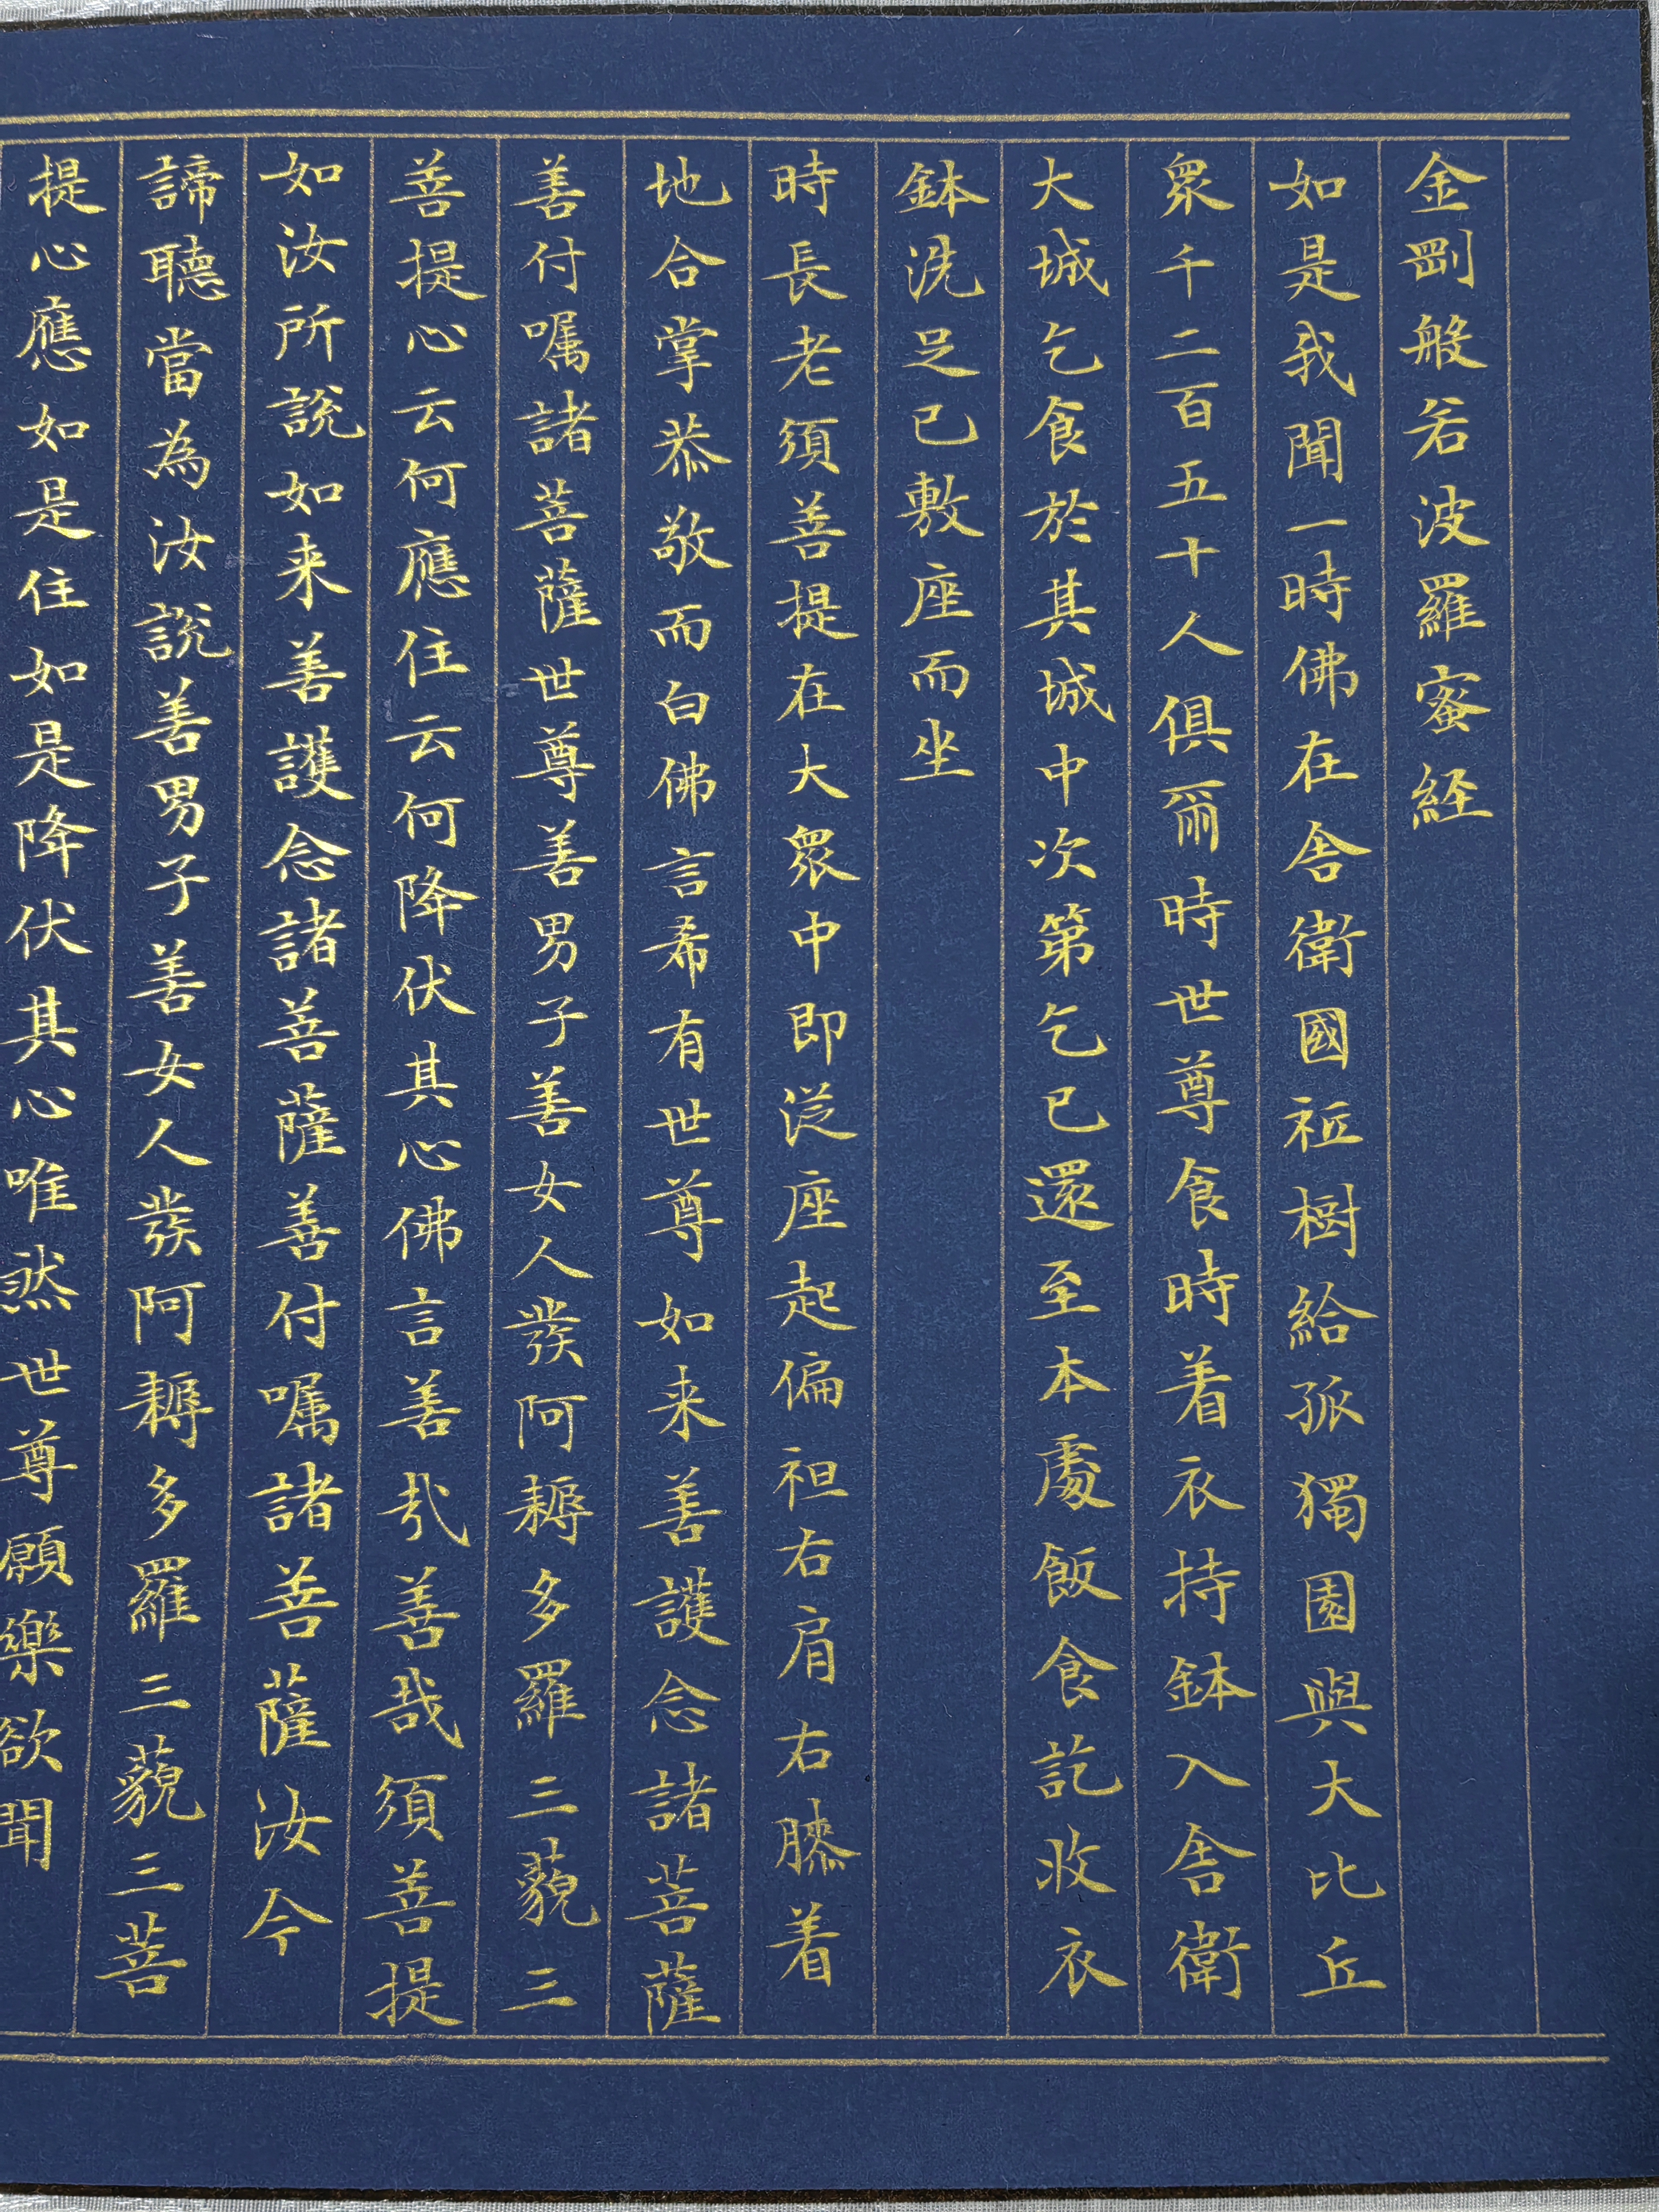 金剛般若波羅蜜経
如是我聞一時佛在舎衛國祇樹給孤獨園與大比丘
眾千二百五十人俱爾時世尊食時着衣持鉢入舎衛
大城乞食於其城中次第乞已還至本處飯食訖收衣
鉢洗足已敷座而坐
時長老須菩提在大眾中即從座起偏袒右肩右膝着
地合掌恭敬而白佛言希有世尊如来善護念諸菩薩
善付囑諸菩薩世尊善男子善女人發阿耨多羅三藐三
菩提心云何應住云何降伏其心佛言善哉善哉須菩提
如汝所說如来善護念諸菩薩善付囑諸菩薩汝今
諦聽當為汝說善男子善女人發阿耨多羅三藐三菩
提心應如是住如是降伏其心唯然世尊願樂欲聞